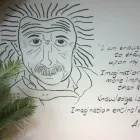 "I am enough
to d
upon my
Imaginati
more imp
than k
Knowledge is
Imagination encircle
A